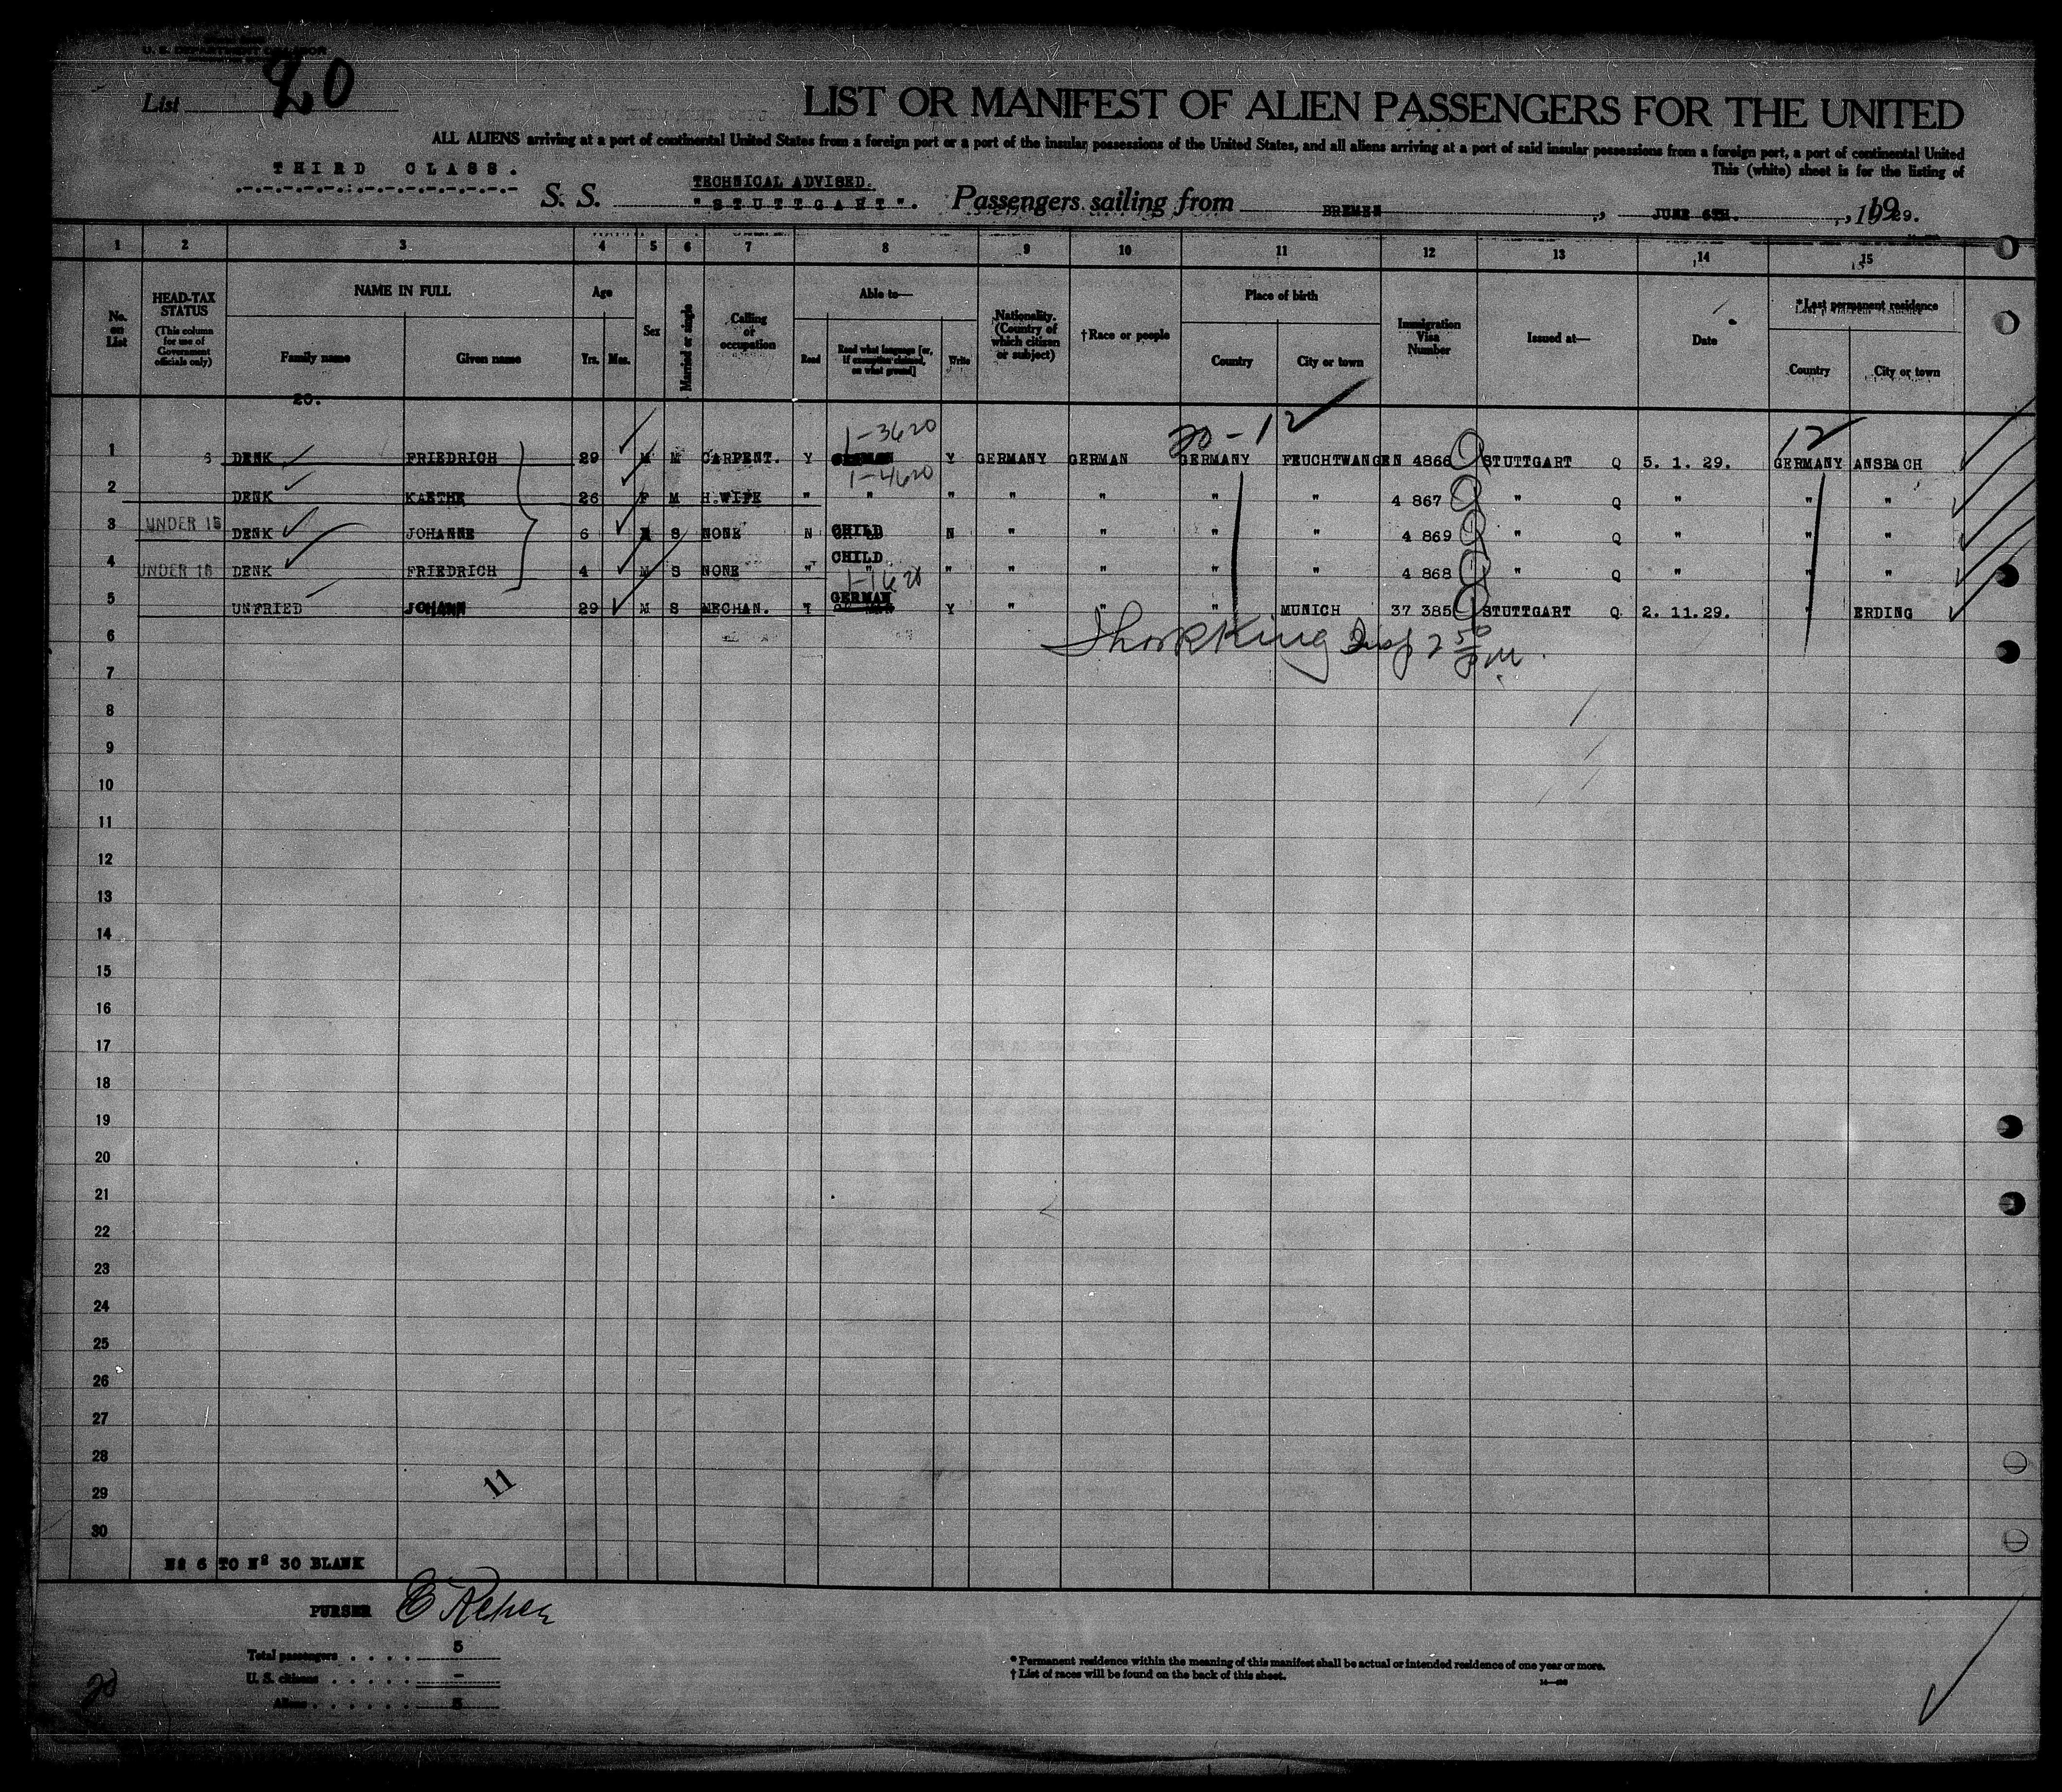 U. S. DEPARTMENT OF LABOR
List 20
LIST OR MANIFEST OF ALIEN PASSENGERS FOR THE UNITED
ALL ALIENS arriving at a port of continental United States from a foreign port or a port of the insular possessions of the United States, and all aliens arriving at a port of said insular possessions from a foreign port, a port of continental United
This (white) sheet is for the listing of
THIRD CLASS.
TECHNICAL ADVISED.
S. S. "STUTTGART". Passengers sailing from BREMEN, JUNE 6TH., 1929.
1 2 3 4 5 6 7 8 9 10 11 12 13 14 15
No. on List
HEAD-TAX STATUS
(This column for use of Government officials only)
NAME IN FULL
Family name
Given name
Age
Yrs. Mos.
Sex
Married or single
Calling or occupation
Able to—
Read
Read what language [or, if exemption claimed, on what ground]
Write
Nationality. (Country of which citizen or subject)
†Race or people
Place of birth
Country
City or town
Immigration Visa Number
Issued at—
Date
*Last permanent residence
Country
City or town
20.
1-3620 20-12 12
1 DENK FRIEDRICH 29 M M CARPENT. Y GERMAN Y GERMANY GERMAN GERMANY FEUCHTWANGEN 4866 STUTTGART Q 5. 1. 29. GERMANY ANSBACH
1-4620
2 DENK KAETHE 26 F M H.WIFE " " " " " " " 4 867 " Q " " "
3 UNDER 16 DENK JOHANNE 6 S NONE N CHILD N " " " " 4 869 " Q " " "
4 UNDER 16 DENK FRIEDRICH 4 M S NONE " CHILD " " " " " 4 868 " Q " " "
1-1628
5 UNFRIED JOHANN 29 M S MECHAN. Y GERMAN Y " " " MUNICH 37 385 STUTTGART Q 2. 11. 29. " ERDING
6
King Insp 2 50 PM.
7
8
9
10
11
12
13
14
15
16
17
18
19
20
21
22
23
24
25
26
27
28
11
29
30
Nº 6 TO Nº 30 BLANK
PURSER
Total passengers . . . . 5
U. S. citizens . . . . . –
Aliens . . . . . . 5
20
* Permanent residence within the meaning of this manifest shall be actual or intended residence of one year or more.
† List of races will be found on the back of this sheet.